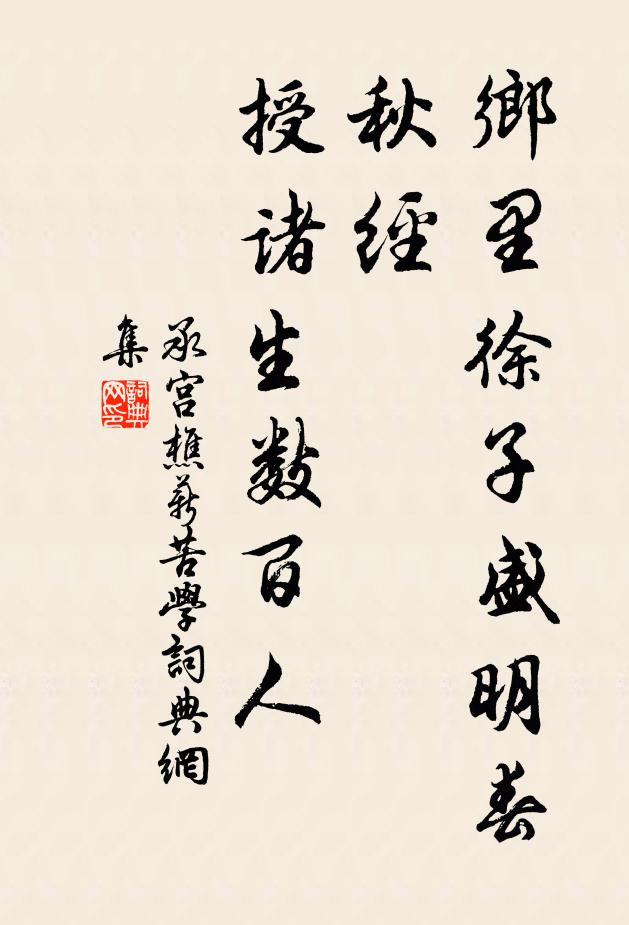 鄉里徐子盛明春
秋經
授诸生數百人
承宮樵薪苦學詞典網
集
詞典
网印